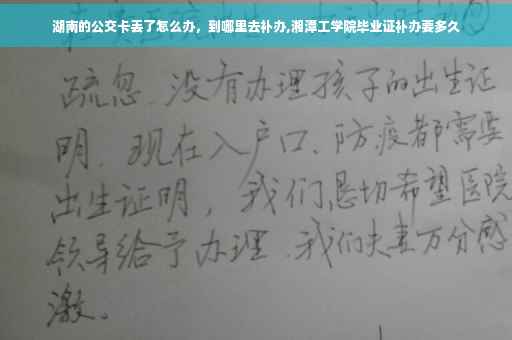 湖南的公交卡丢了怎么办，到哪里去补办,湘潭工学院毕业证补办要多久
疏忽、没有办理孩子的出生证
明、现在入户口、防疫都需要
出生证明，我们恳切希望医院
领导给予办理、我们夫妻万分感
激。